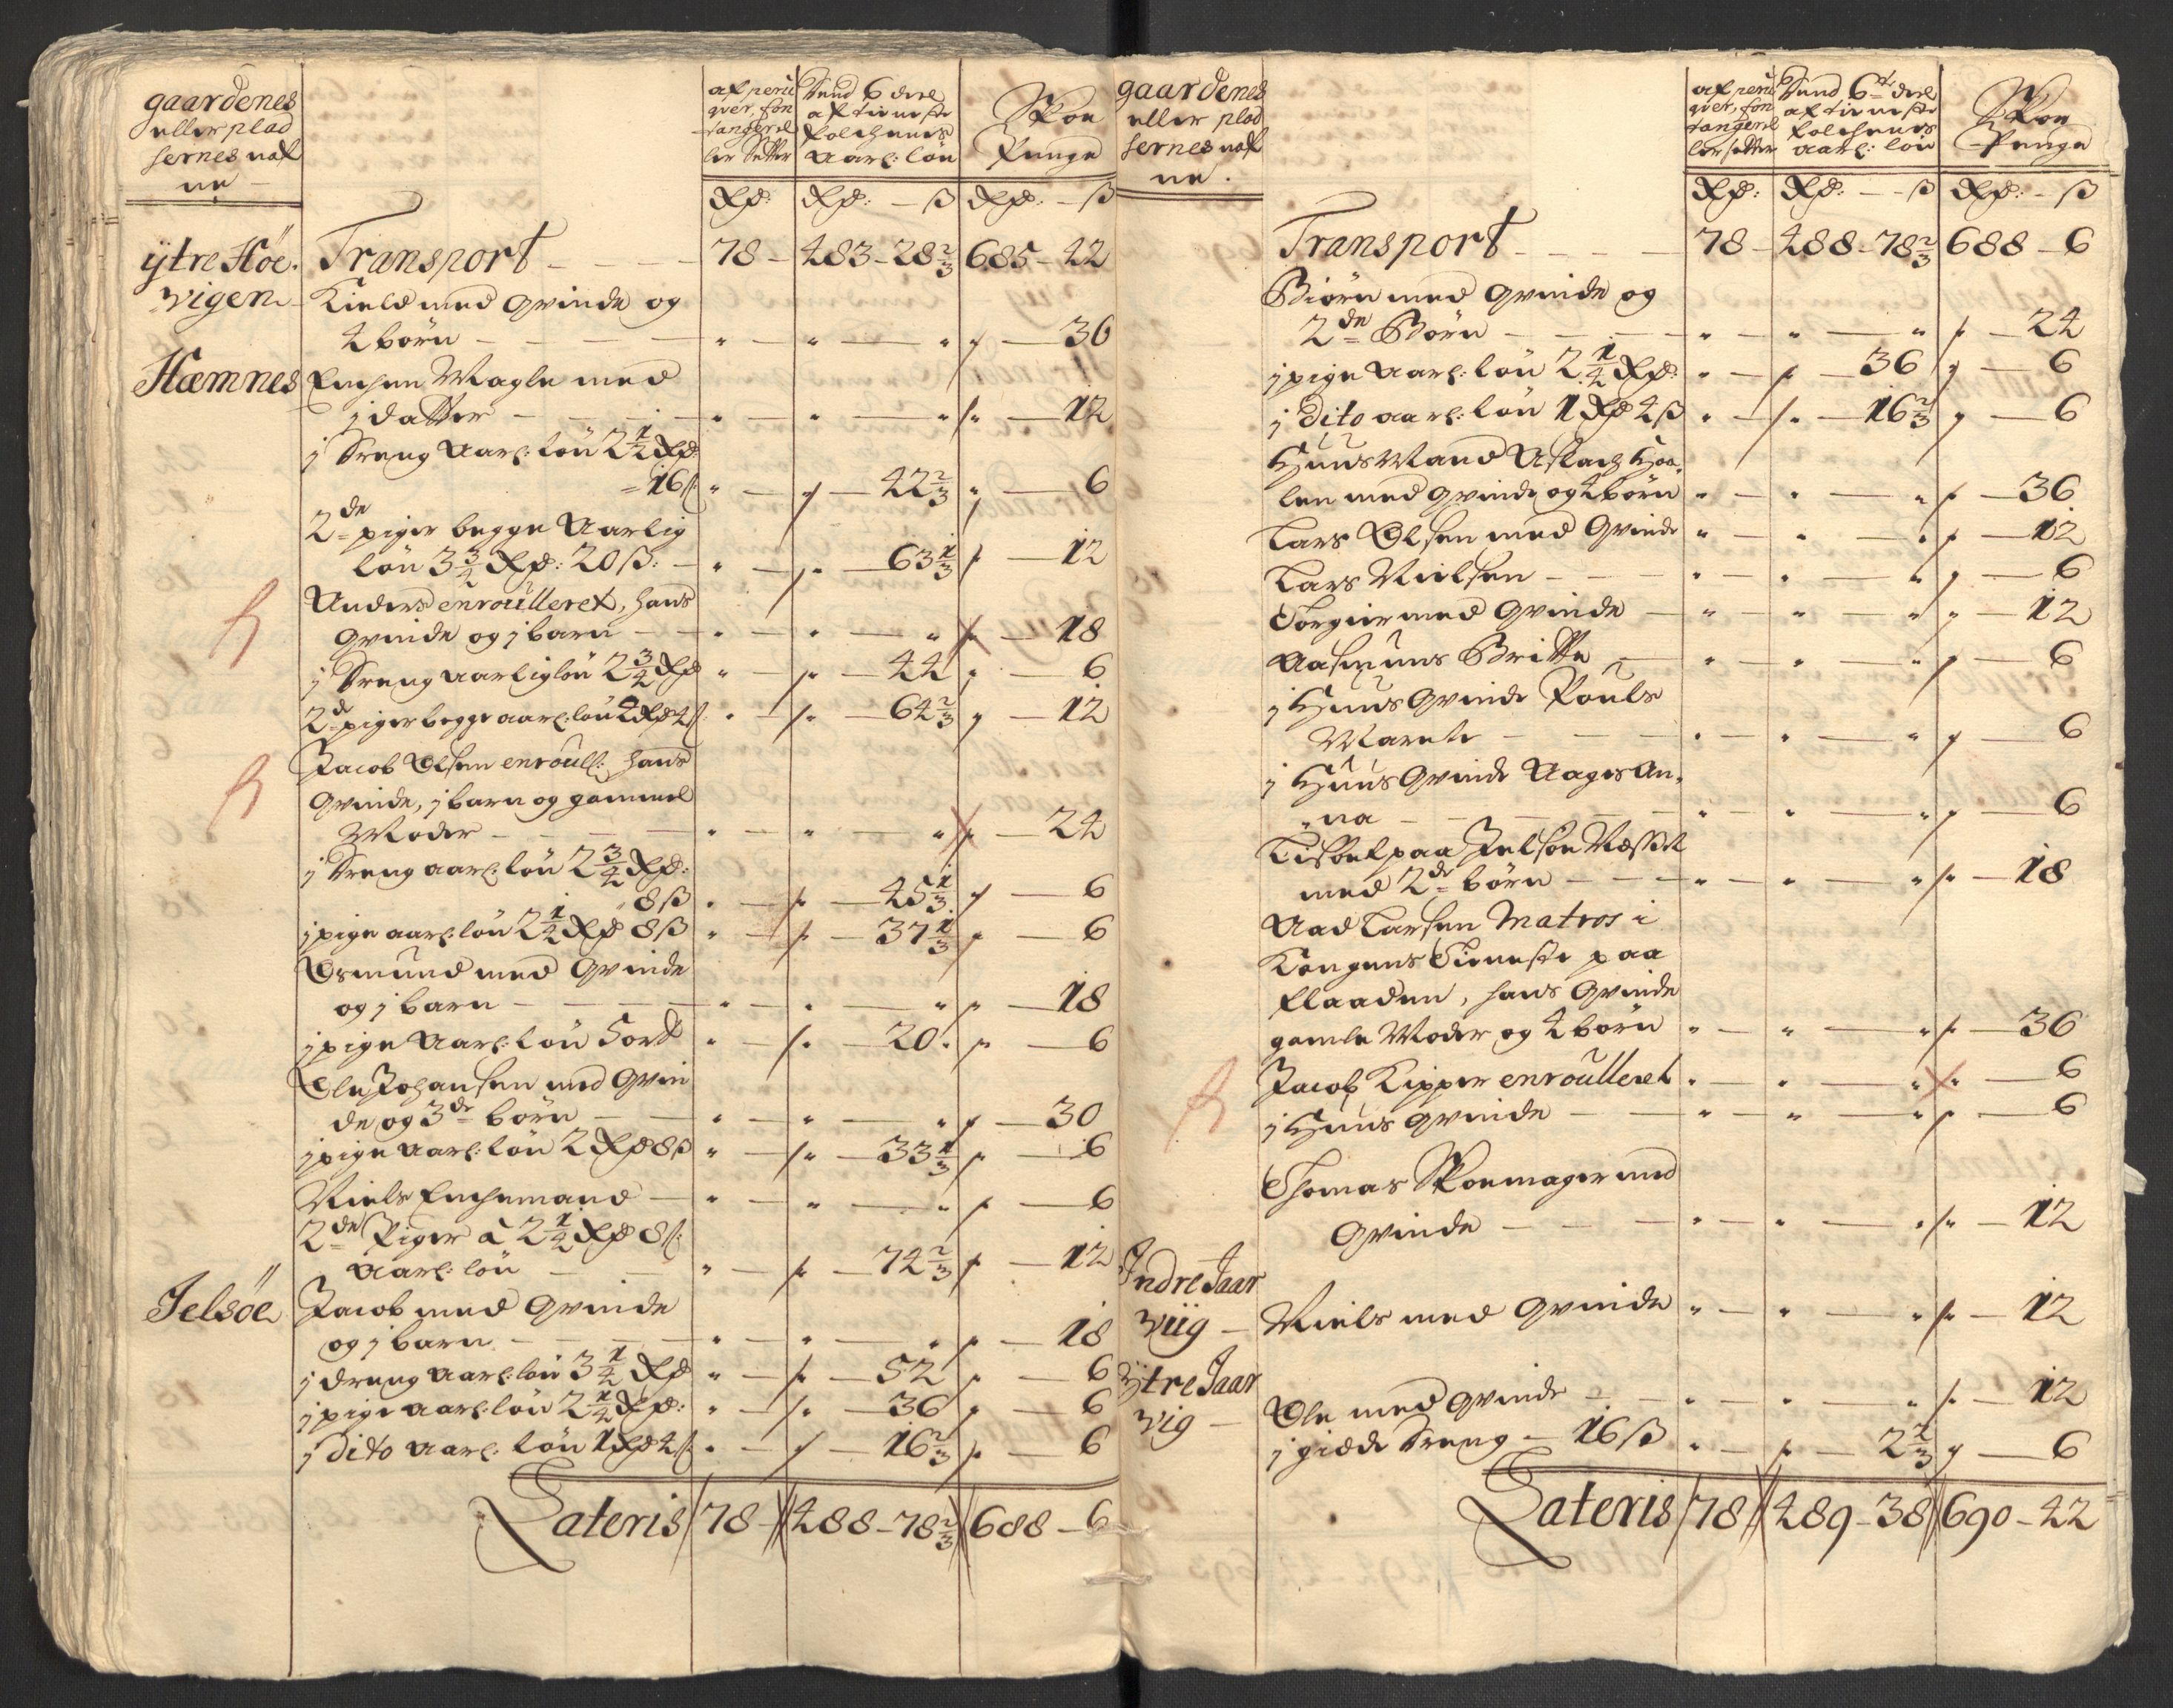 gaardenes
eller plad
sernes naf
ne
af peru
qver, fon
tanger el
ler Setter
Hvad 6 deel
af tieneste
folchenes
Aarl: løn
Skoe
Penge
Rd: Rd: – ß Rd: – ß
ÿtre Høe.
vigen
Transport – – – 78 – 483 – 28 2/3 685 – 42
Kield med Qvinde og
4 børn – – – " – " – " " – 36
Hæmnes
Enchen Magle med
j datter – – – " – " – " " – 12
j dreng Aarl: løn 2 1/2 Rd
= 16 ß: " – " – 42 2/3 " – 6
2de piger begge Aarlig
løn 3 3/4 Rd: 20 ß: – " – " – 63 1/3 " – 12
Anders enroulleret, hans
Qvinde og j barn – – " – " – " " – 18
j dreng aarlig løn 2 3/4 Rd " – " – 44 " – 6
2de piger begge aarl: løn 4 Rd 4 ß: " – " – 64 2/3 " – 12
Jacob Olsen enroull: hans
Qvinde, j barn og gammel
Moder – – – " – " – " " – 24
j dreng aarl: løn 2 3/4 Rd:
8 ß " – " – 45 1/3 " – 6
j pige aarl: løn 2 1/4 Rd 8 ß " – " – 37 1/3 " – 6
Osmund med Qvinde
og j barn – – – " – " – " " – 18
j pige Aarl: løn 5 ort " – " – 20 " – 6
Ole Johansen med Qvin
de og 3de børn – – " – " – " " – 30
j pige Aarl: løn 2 Rd 8 ß " – " – 33 1/3 " – 6
Niels Enchemand – " – " – " " – 6
2de Piger à 2 1/4 Rd 8 ß:
Aarl: løn – – " – " – 74 2/3 " – 12
Jelsøe
Jacob med Qvinde
og j barn – – – " – " – " " – 18
j dreng Aarl: løn 3 1/4 Rd " – " – 52 " – 6
j pige aarl: løn 2 1/4 Rd: " – " – 36 " – 6
j dito Aarl: løn 1 Rd 4 ß: " – " – 16 2/3 " – 6
Lateris 78 – 488 – 78 2/3 688 – 6
gaardenes
eller plad
sernes naf
ne.
af peru
qver, fon
tanger el
ler setter
Hvad 6te deel
af tieneste
folchenes
aarl: løn
Skoe
Penge
Rd: Rd: – ß Rd: – ß
Transport – – – 78 – 488 – 78 2/3 688 – 6
Biørn med Qvinde og
2de Børn – – – " – " – " " – 24
j pige Aarl: løn 2 1/4 Rd: " – " – 36 " – 6
j dito aarl: løn 1 Rd 4 ß " – " – 16 2/3 " – 6
Huus Mand Aslach Hoe,
len med Qvinde og 4 børn " – " – " " – 36
Lars Olsen med Qvinde " – " – " " – 12
Lars Nielsen – – – " – " – " " – 6
Torgier med Qvinde – " – " – " " – 12
Aasmuns Britte – " – " – " " – 6
j Huus Qvinde Pouls
Marete – – – " – " – " " – 6
j Huus Qvinde Aages An,
na – – – " – " – " " – 6
Lisbet paa Jelsøe Næsset
med 2de børn – – – " – " – " " – 18
Aad Larsen Matros i
Kongens Tieneste paa
flaaden, hans Qvinde
gamle Moder og 4 børn " – " – " " – 36
Jacob Kipper enroulleret " – " – " " – 6
j Huus Qvinde – – " – " – " " – 6
Thomas Skoemager med
Qvinde – – – " – " – " " – 12
Indre Jaar
viig –
Niels med Qvinde " – " – " " – 12
Ÿtre Jaar
vig –
Ole med Qvinde – – " – " – " " – 12
j giede dreng – 16 ß " – " – 2 2/3 " – 6
Lateris 78 489 – 38 690 – 42